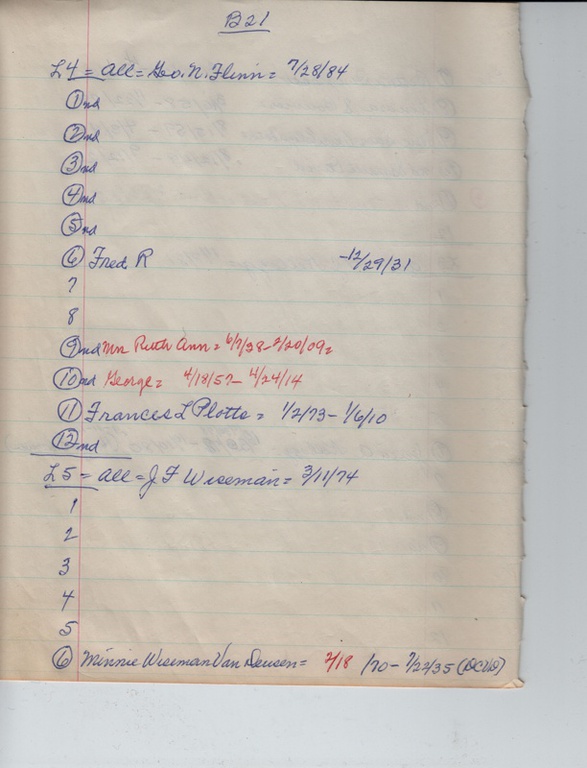 B21
L4 = All = Geo. N. Flinn = 7/28/84
1 nd
2 nd
3 nd
4 nd
5 nd
6 Fred R -12/29/31
7
8
9 nd Mrs Ruth Ann = 6/7/38-2/20/09
10 nd George = 4/18/57- 4/24/14
11 Frances L Plotto = 1/2/73- 1/6/10
12 nd
L5 = All = J F Wiseman = 3/11/74
1
2
3
4
5
6 Minnie Wiseman Van Deusen = 2/18 /70- 7/22/35 (DCVD)